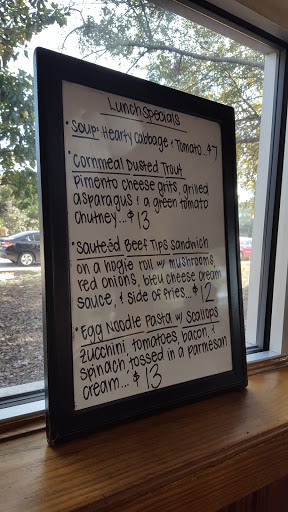 Lunch Specials
• Soup: Hearty Cabbage & Tomato..$7
• Cornmeal Dusted Trout
Pimento cheese grits, grilled
asparagus & a green tomato
chutney...$13
• Sauteéd Beef Tips Sandwich
on a hogie roll w/ mushrooms,
red onions, bleu cheese cream
sauce, & side of fries...$12
• Egg Noodle Pasta w/ Scallops
zucchini, tomatoes, bacon, &
spinach, tossed in a parmesan
cream...$13